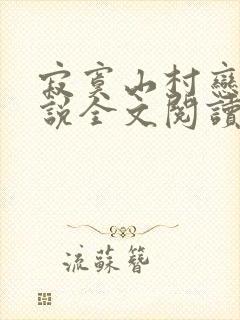 寂寞山村戀
說全文閱讀
流蘇簪